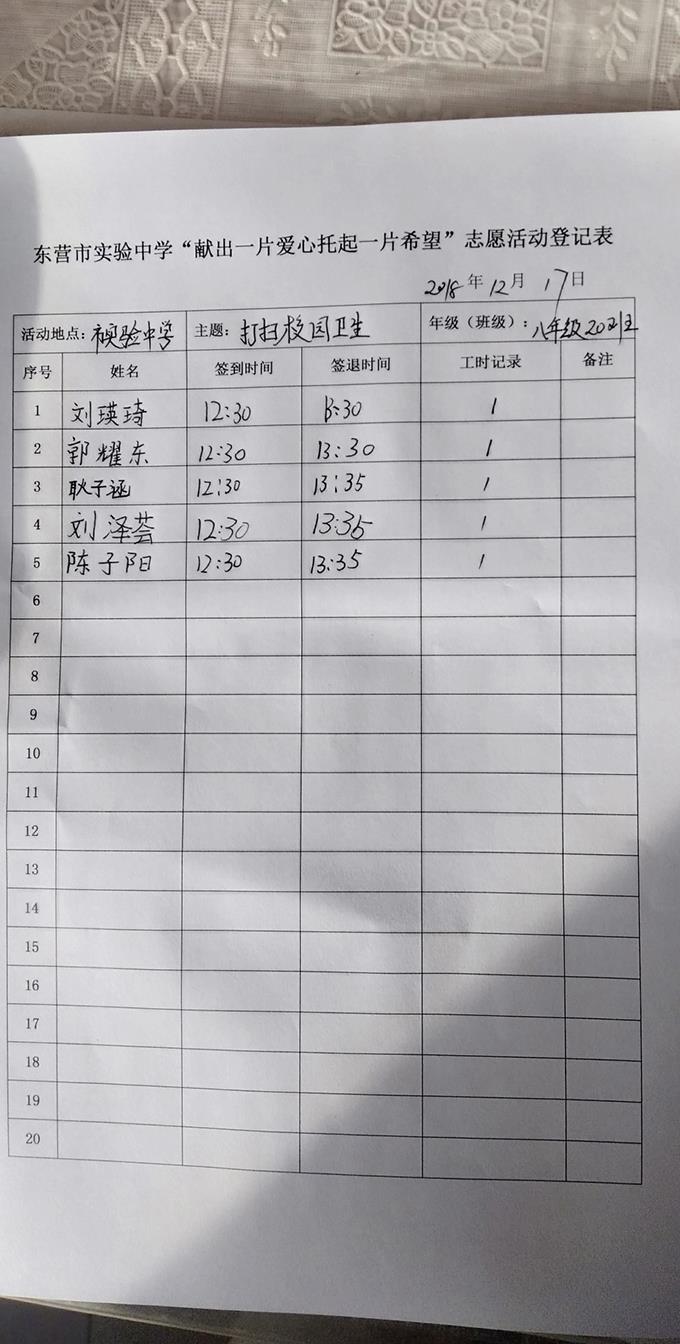 东营市实验中学“献出一片爱心托起一片希望”志愿活动登记表
2018年12月17日
活动地点：市实验中学 主题：打扫校园卫生 年级（班级）：八年级20班
序号 姓名 签到时间 签退时间 工时记录 备注
1 刘瑛琦 12:30 13:30 1
2 郭耀东 12:30 13:30 1
3 耿子涵 12:30 13:35 1
4 刘泽荟 12:30 13:35 1
5 陈子阳 12:30 13:35 1
6
7
8
9
10
11
12
13
14
15
16
17
18
19
20